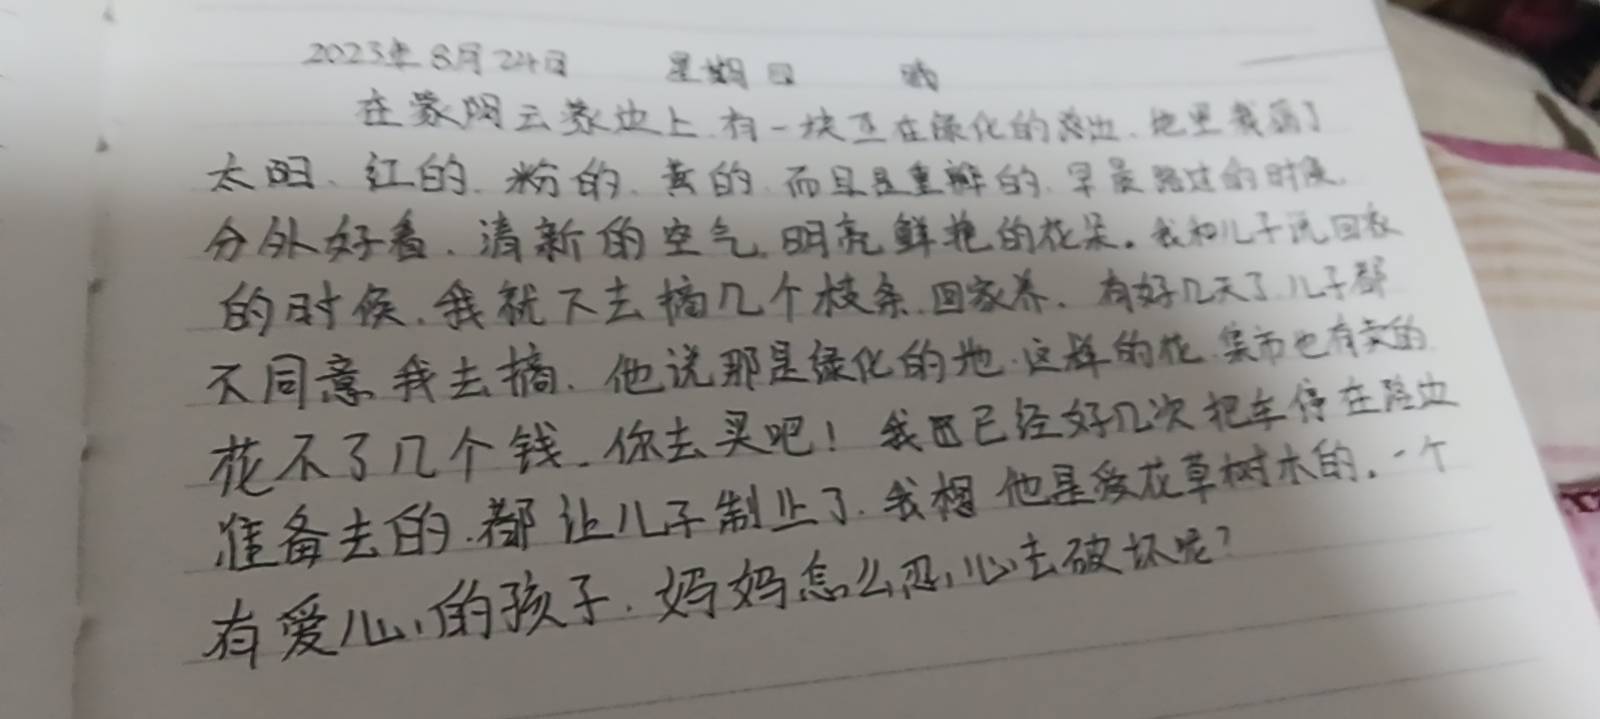 2025年8月24日 星期日 晴
在蒙阴云蒙边上有一块正在绿化的路边、地里栽满了
太阳、红的、粉的、黄的、而且是重瓣的、早晨路过的时候、
分外好看、清新的空气、明亮鲜艳的花朵。我和儿子说回农
的时候、我就下去摘几个枝条、回家养、有好几天了、儿子都
不同意我去摘、他说那是绿化的地、这样的花、集市也有卖的
花不了几个钱、你去买吧！我已经好几次把车停在路边
准备去的、都让儿子制止了、我想他是爱花草树木的、一个
有爱心的孩子、妈妈怎么忍心去破坏呢？